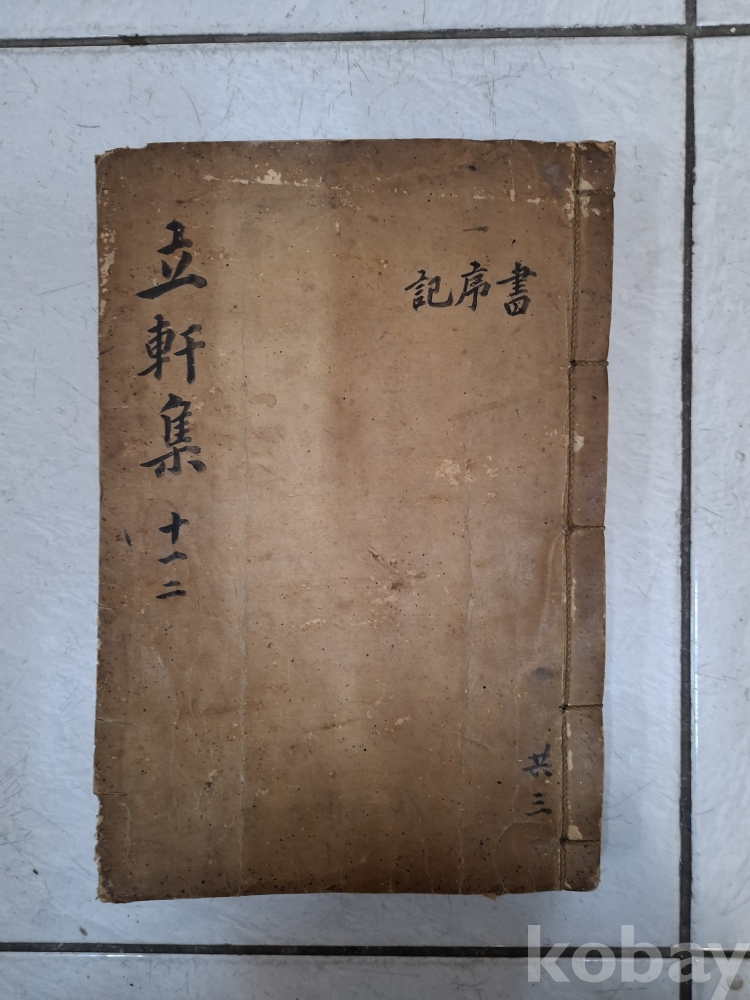 立軒集 十一二
書序記
共三
kobay